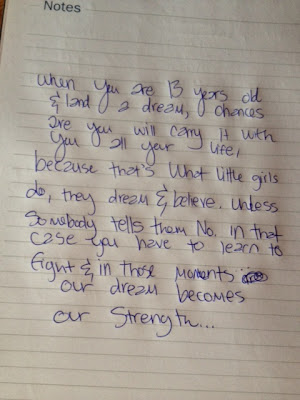 Notes
When you are 13 years old
& land a dream, chances
are you will carry it with
you all your life,
because that's what little girls
do, they dream & believe. Unless
somebody tells them No. In that
case you have to learn to
fight & in those moments
our dream becomes
our strength...